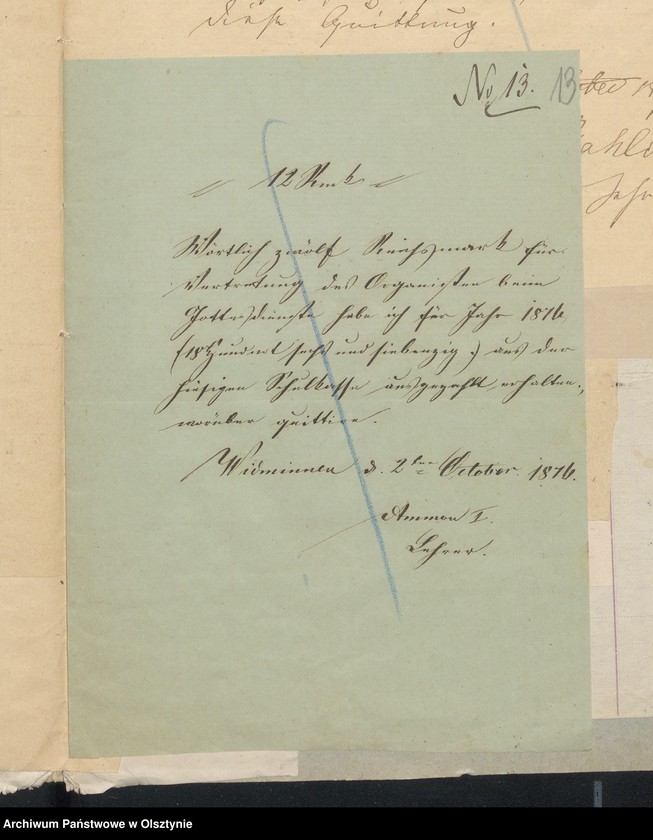 diese Quittung.
No 13. 13
12 Rmk
Wörtlich zwölf Reichsmark für
Vertretung des Organisten beim
Gottesdienste habe ich für Jahr 1876
(18 Hundert sechs und siebenzig) aus der
hiesigen Schulkasse ausgezahlt erhalten,
worüber quittire.
Widminnen d. 2ten October 1876.
Ammon I.
Lehrer.
Archiwum Państwowe w Olsztynie